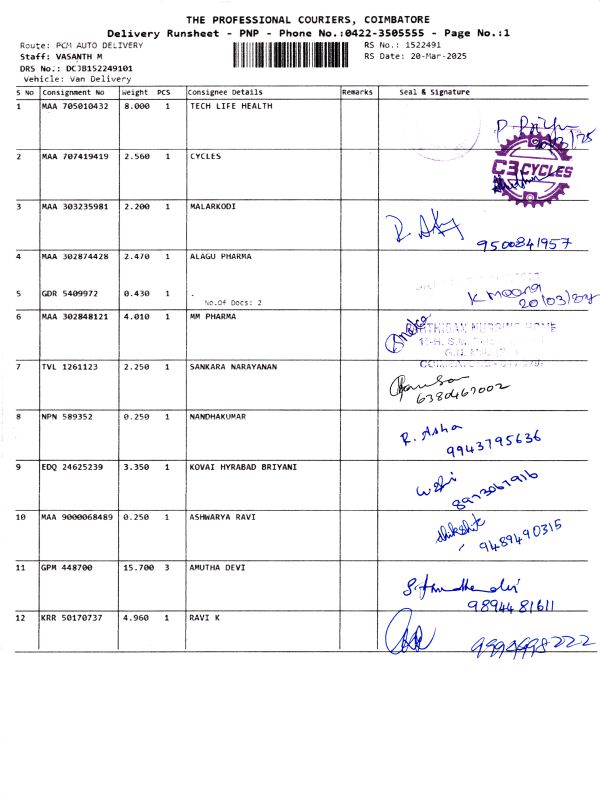 THE PROFESSIONAL COURIERS, COIMBATORE
Delivery Runsheet - PNP - Phone No.:0422-3505555 - Page No.:1
Route: PCM AUTO DELIVERY RS No.: 1522491
Staff: VASANTH M RS Date: 20-Mar-2025
DRS No.: DCJB152249101
Vehicle: Van Delivery
S No Consignment No Weight PCS Consignee Details Remarks Seal & Signature
1 MAA 705010432 8.000 1 TECH LIFE HEALTH
2 MAA 707419419 2.560 1 CYCLES
C3 CYCLES
3 MAA 303235981 2.200 1 MALARKODI
9500841957
4 MAA 302874428 2.470 1 ALAGU PHARMA
5 GDR 5409972 0.430 1 .
No.Of Docs: 2
K Moorthi
6 MAA 302848121 4.010 1 MM PHARMA
7 TVL 1261123 2.250 1 SANKARA NARAYANAN
6380467002
8 NPN 589352 0.250 1 NANDHAKUMAR
R. Asha
9943795636
9 EDQ 24625239 3.350 1 KOVAI HYRABAD BRIYANI
10 MAA 9000068489 0.250 1 ASHWARYA RAVI
9489490315
11 GPM 448700 15.700 3 AMUTHA DEVI
9894481611
12 KRR 50170737 4.960 1 RAVI K
9994998222